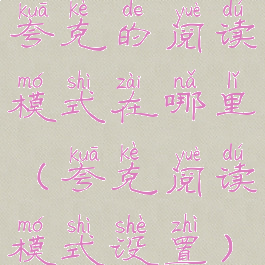 kuā kè de yuè dú
夸克的阅读
mó shì zài nǎ lǐ
模式在哪里
kuā kè yuè dú
（夸克阅读
mó shì shè zhì
模式设置）